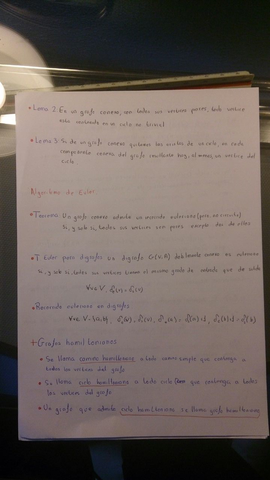 • Lema 2: En un grafo conexo, con todos sus vértices pares, todo vértice
está contenido en un ciclo no trivial
• Lema 3: Si de un grafo conexo quitamos las aristas de un ciclo, en cada
componente conexa del grafo resultante hay, al menos, un vértice del
ciclo.
Algoritmo de Euler.
• Teorema: Un grafo conexo admite un recorrido euleriano (pero no circuito)
si, y solo si, todos sus vértices son pares excepto dos de ellos
• T. Euler para digrafos: Un digrafo G(V,A) débilmente conexo es euleriano
si, y solo si, todos sus vértices tienen el mismo grado de entrada que de salida
∀v∈V
• Recorrido euleriano en digrafos
+ Grafos hamiltonianos
• Se llama camino hamiltoniano a todo camino simple que contenga a
todos los vértices del grafo
• Se llama ciclo hamiltoniano a todo ciclo que contenga a todos
los vértices del grafo
• Un grafo que admite ciclo hamiltoniano se llama grafo hamiltoniano